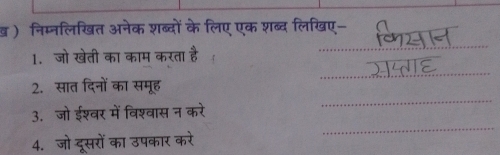 ख) निम्नलिखित अनेक शब्दों के लिए एक शब्द लिखिए–
1. जो खेती का काम करता है किसान
2. सात दिनों का समूह सप्ताह
3. जो ईश्वर में विश्वास न करे
4. जो दूसरों का उपकार करे